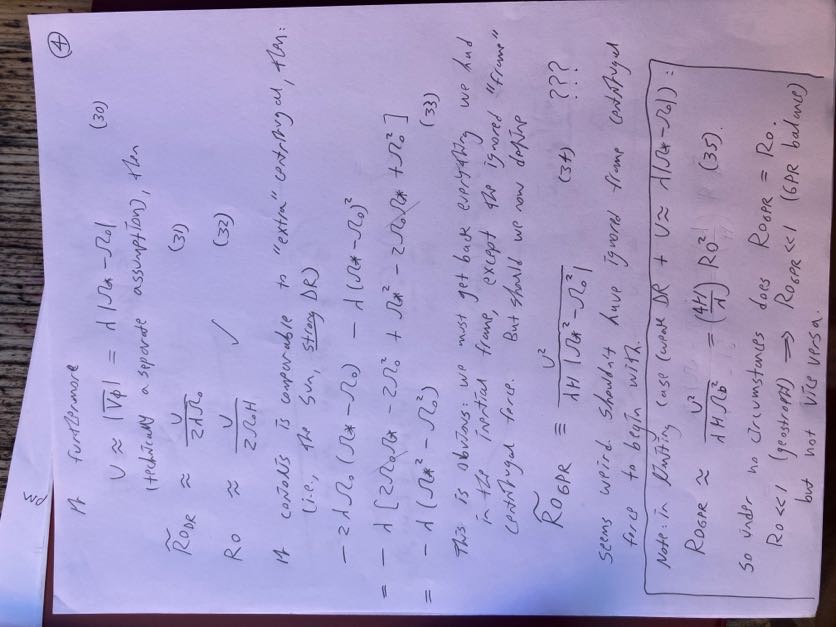 pm
④
If furthermore
U ≈ |V̄φ| = λ|Ω* − Ω₀| (30)
(technically a separate assumption), then
R̃o_DR ≈ U / 2λΩ₀ (31)
Ro ≈ U / 2Ω₀H ✓ (32)
If coriolis is comparable to "extra" centrifugal, then:
(i.e., the Sun, strong DR)
− 2λΩ₀(Ω* − Ω₀) − λ(Ω* − Ω₀)²
= − λ[2Ω₀Ω* − 2Ω₀² + Ω*² − 2Ω₀Ω* + Ω₀²]
= − λ(Ω*² − Ω₀²) (33)
This is obvious: we must get back everything we had
in the inertial frame, except the ignored "frame"
centrifugal force. But should we now define
R̃o_GPR ≡ U² / λH|Ω*² − Ω₀²| (34) ???
Seems weird. Shouldn't have ignored frame centrifugal
force to begin with.
Note: in limiting case (weak DR + U ≈ λ|Ω* − Ω₀|):
Ro_GPR ≈ U² / λHΩ₀² = (4H/λ) Ro² (35).
So under no circumstances does Ro_GPR = Ro.
Ro << 1 (geostroph) ⟹ Ro_GPR << 1 (GPR balance)
but not vice versa.